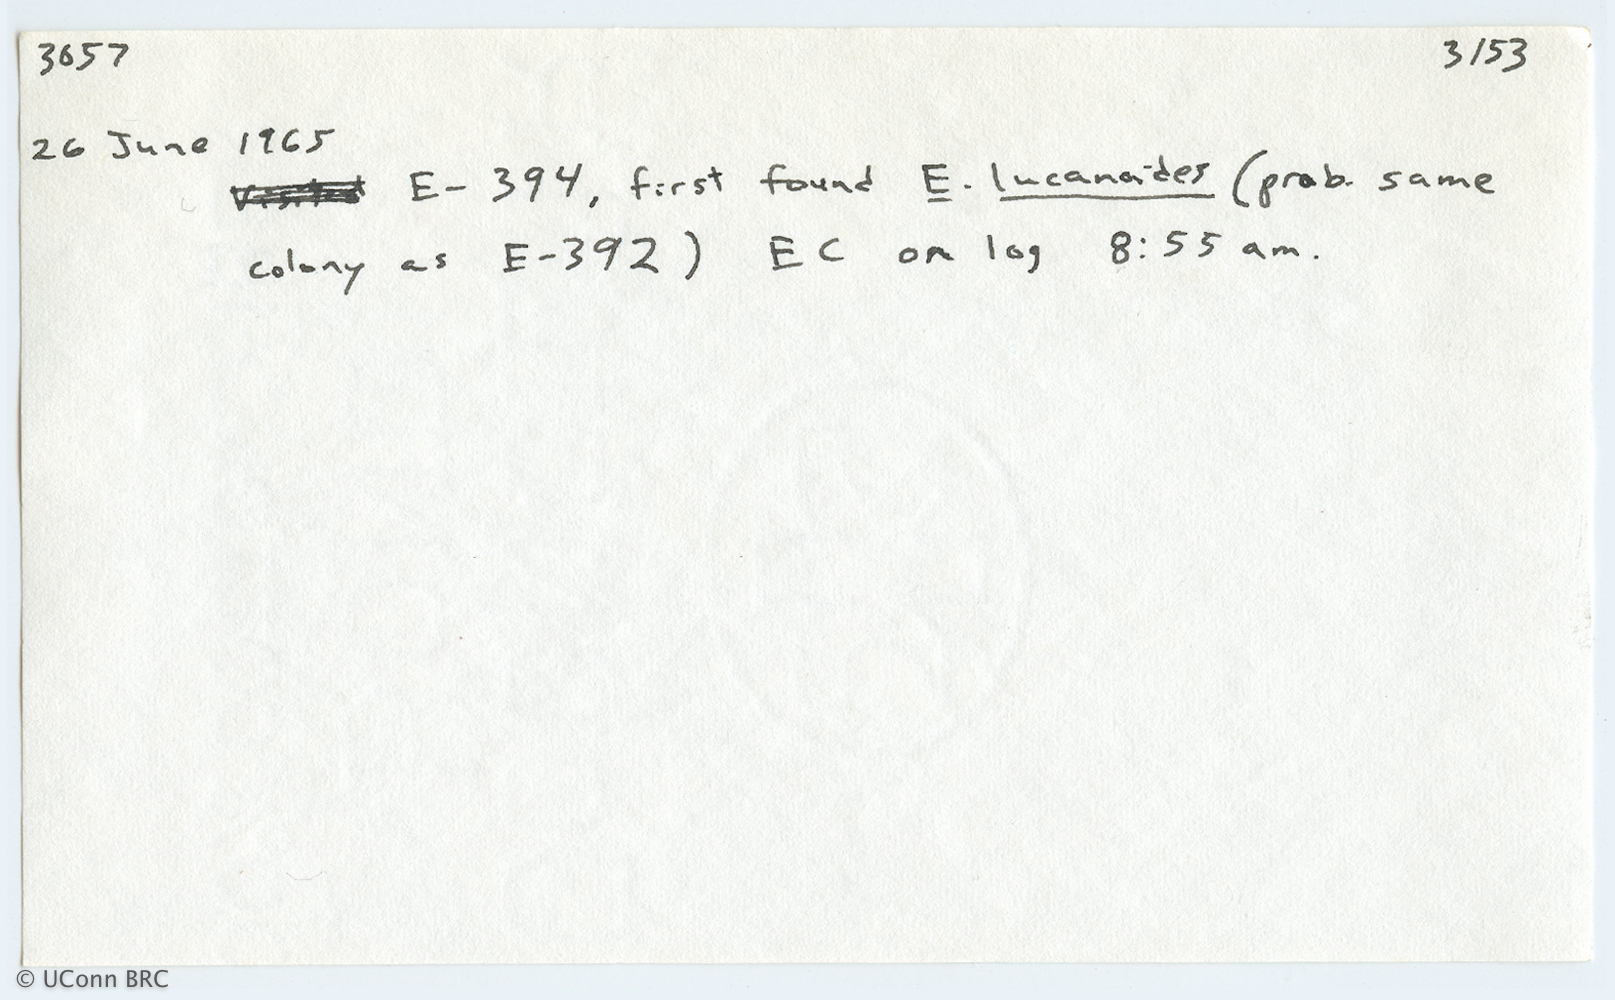 3657 3153
26 June 1965
E-394, first found E. lucanoides (prob. same
colony as E-392) EC on log 8:55 am.
© UConn BRC